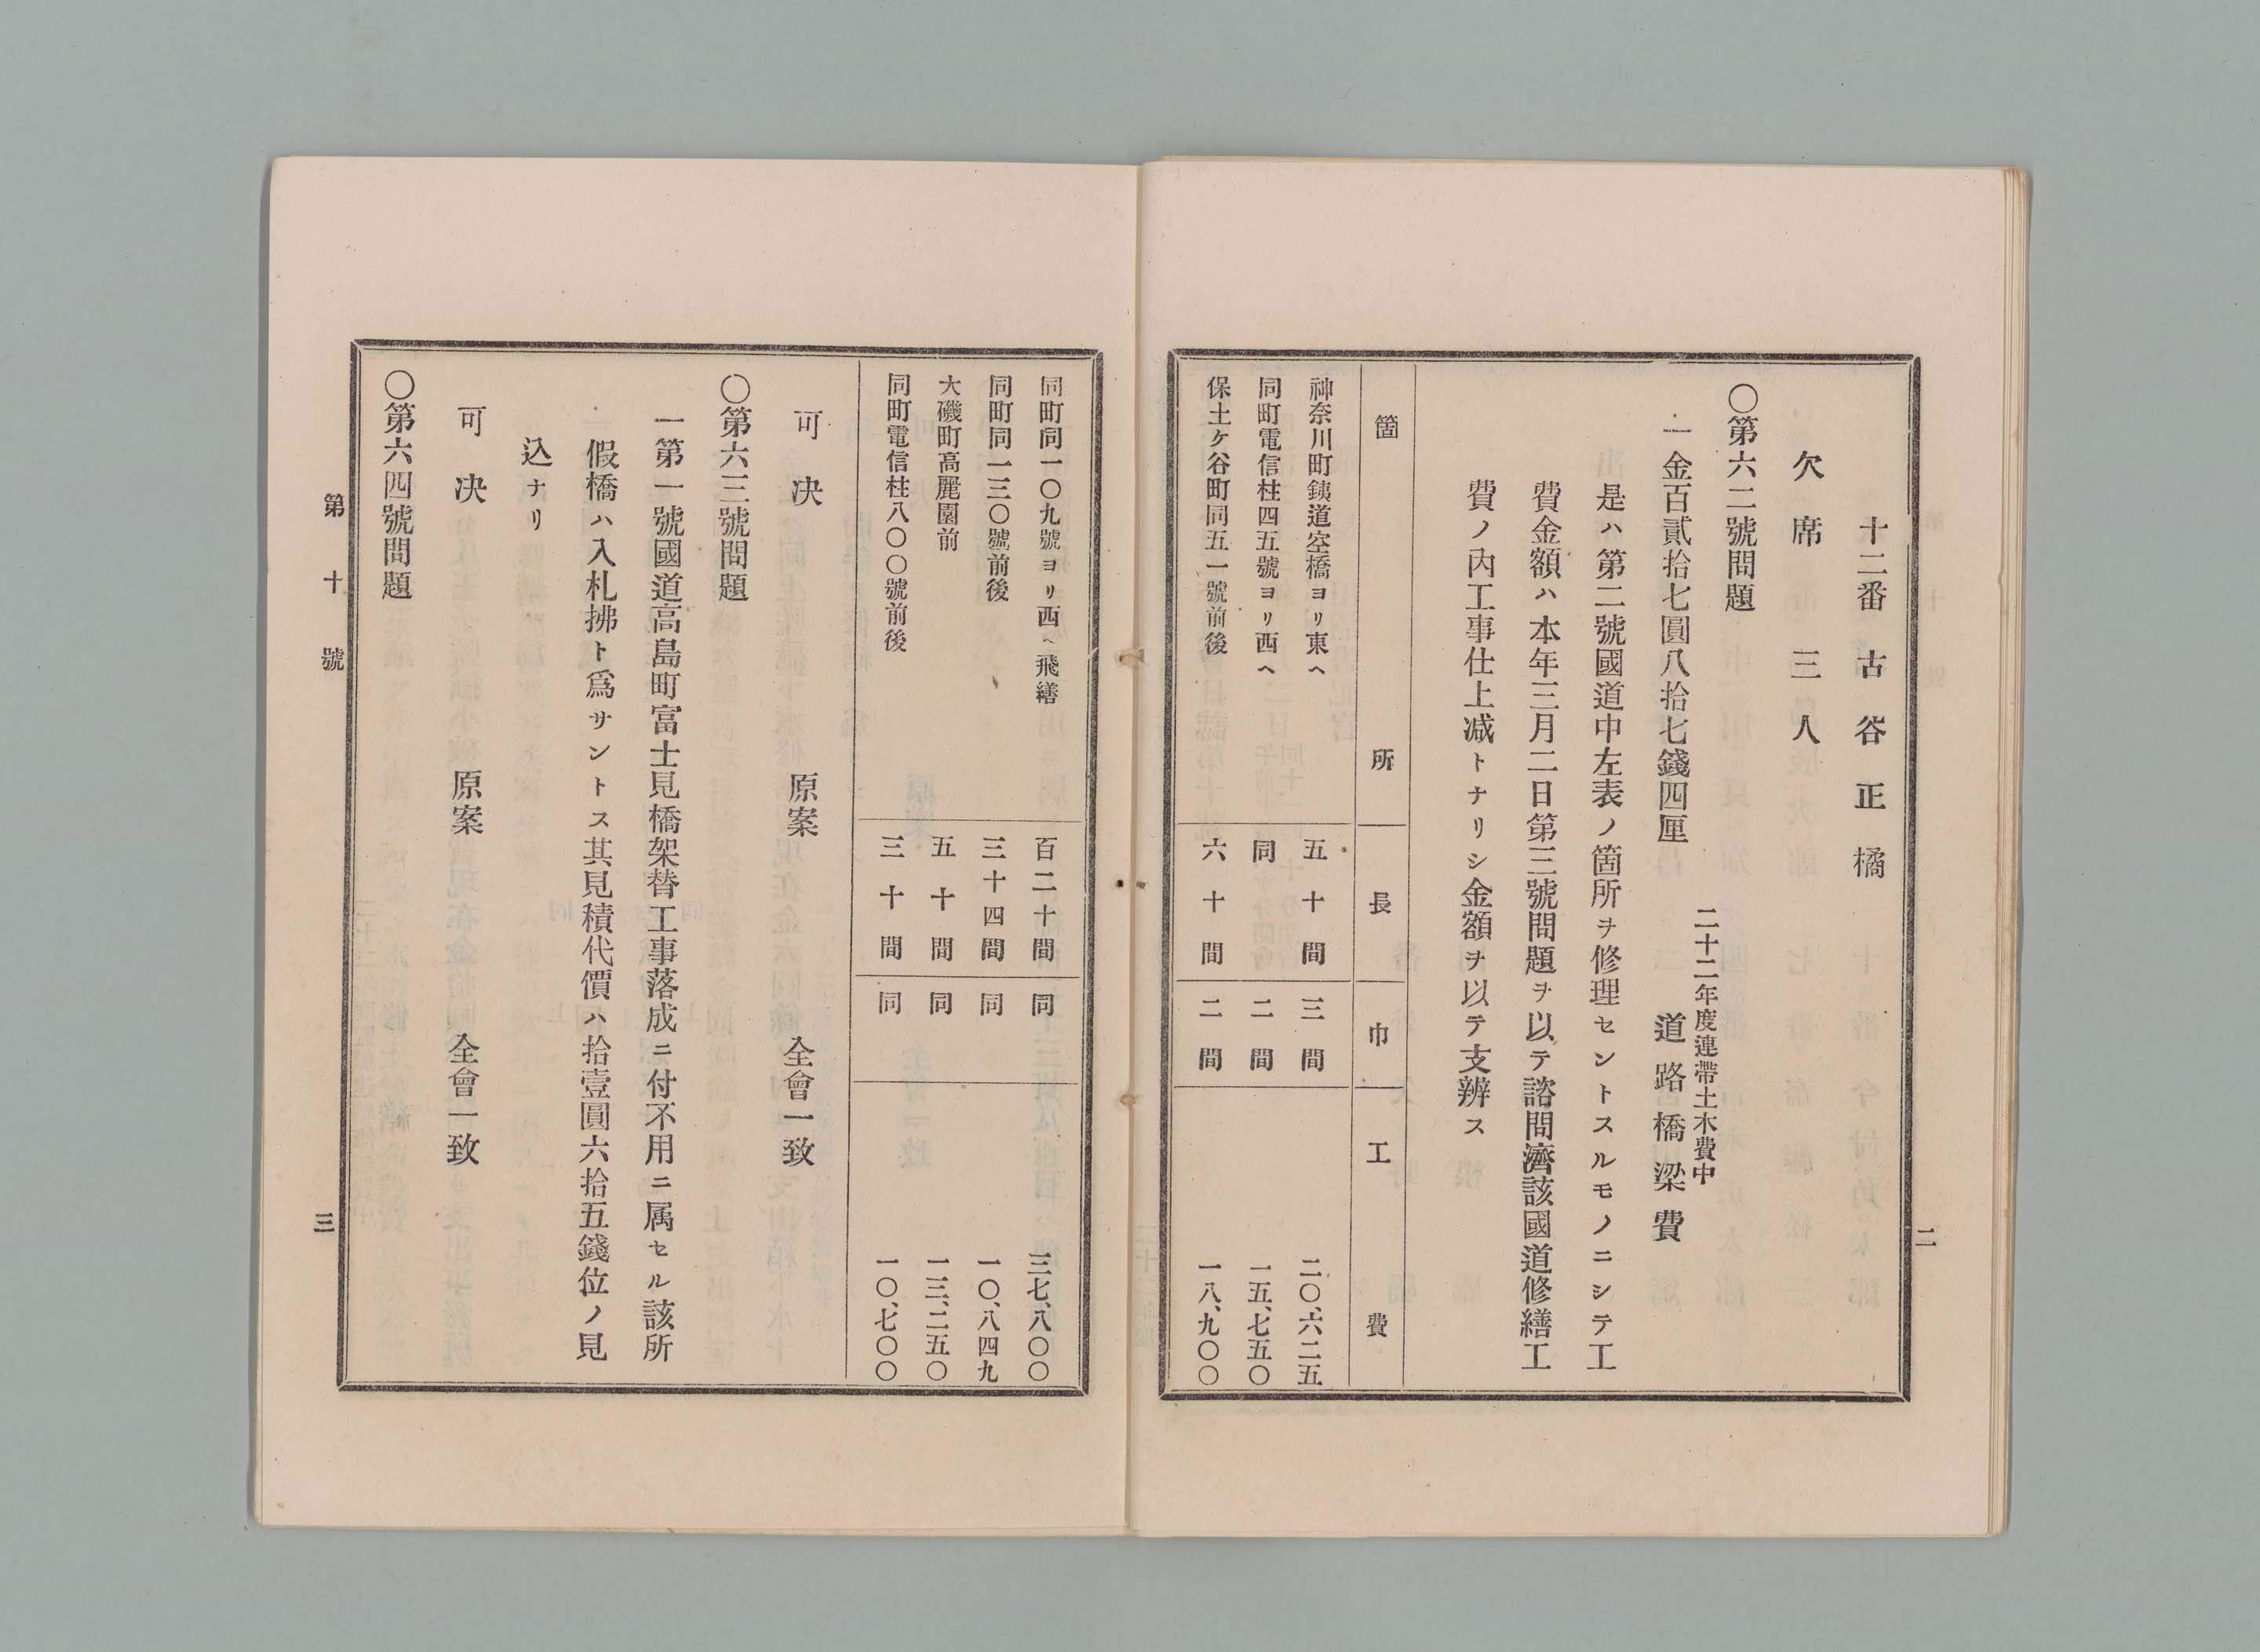 二
十二番 古谷正橘
欠席三人
〇第六二號問題
二十二年度連帶土木費中
一金百貳拾七圓八拾七錢四厘 道路橋梁費
是ハ第二號國道中左表ノ箇所ヲ修理セントスルモノニシテ工
費金額ハ本年三月二日第三號問題ヲ以テ諮問濟該國道修繕工
費ノ内工事仕上減トナリシ金額ヲ以テ支辨ス
箇所 長 巾 工費
神奈川町鐵道空橋ヨリ東ヘ 五十間 三間 二〇、六二五
同町電信柱四五號ヨリ西ヘ 同 二間 一五、七五〇
保土ケ谷町同五一號前後 六十間 二間 一八、九〇〇
同町同一〇九號ヨリ西ヘ飛繕 百二十間 同 三七、八〇〇
同町同一三〇號前後 三十四間 同 一〇、八四九
大磯町高麗園前 五十間 同 一三、二五〇
同町電信柱八〇〇號前後 三十間 同 一〇、七〇〇
可决 原案 全會一致
〇第六三號問題
一第一號國道高島町富士見橋架替工事落成ニ付不用ニ属セル該所
假橋ハ入札拂ト爲サントス其見積代價ハ拾壹圓六拾五錢位ノ見
込ナリ
可决 原案 全會一致
〇第六四號問題
第十號 三